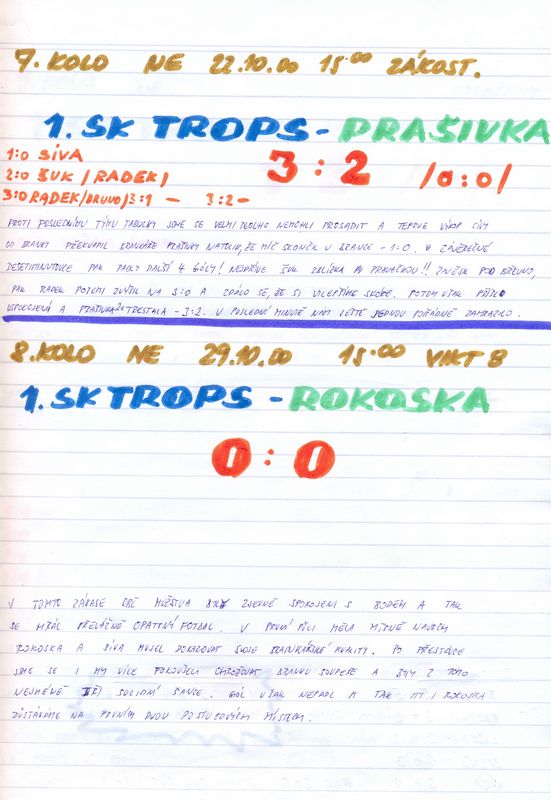 7. KOLO NE 22.10.00 15.00 ZÁKOST.
1. SK TROPS - PRAŠIVKA
1:0 SÍVA 3:2 /0:0/
2:0 ŠUK /RADEK/
3:0 RADEK/DRUVO/3:1 - 3:2 -
PROTI POSLEDNÍMU TÝMU TABULKY JSME SE VELMI DLOUHO NEMOHLI PROSADIT A TEPRVE VÝKOP SÍVY
OD BRANKY PŘEKVAPIL BRANKÁŘE PRAŠIVKY NATOLIK, ŽE MÍČ SKONČIL V BRANCE - 1:0. V ZÁVĚREČNÉ
DESETIMINUTOVCE PAK PADLY DALŠÍ 4 GÓLY! NEJDŘÍVE ŠUK PRAVAČKOU!! POD BŘEVNO,
PAK RADEK POTOM ZVÝŠIL NA 3:0 A ZDÁLO SE, ŽE SI VYLEPŠÍME SKÓRE. POTOM VŠAK PŘIŠLO
USPOKOJENÍ A PRAŠIVKA 2x TRESTALA - 3:2. V POSLEDNÍ MINUTĚ NÁM JEŠTĚ JEDNOU POŘÁDNĚ ZAMRAZILO.
8. KOLO NE 29.10.00 15.00 VIKT B
1. SK TROPS - ROKOSKA
0 : 0
V TOMTO ZÁPASE OBĚ MUŽSTVA ZJEVNĚ SPOKOJENI S BODEM A TAK
SE HRÁL PŘEVÁŽNĚ OPATRNÝ FOTBAL. V PRVNÍ PŮLI MĚLA MÍRNĚ NAVRCH
ROKOSKA A SÍVA MUSEL DOKAZOVAT SVOJE BRANKÁŘSKÉ KVALITY. PO PŘESTÁVCE
JSME SE I MY VÍCE POKOUŠELI OHROŽOVAT BRANKU SOUPEŘE A BYLY Z TOHO
NEJMÉNĚ TŘI SOLIDNÍ ŠANCE. GÓL VŠAK NEPADL A TAK MY I ROKOSKA
ZŮSTÁVÁME NA PRVNÍM DVOU POSTUPOVÝCH MÍSTECH.